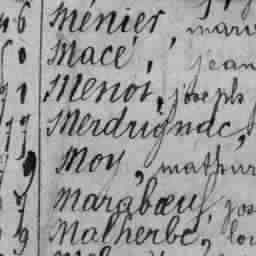 46 Ménier, mari
0 Macé, jean
91 Menot, joseph
Merdrignac,
9 Moy, mathur
Marabœuf, jos
9 Malherbe, lou